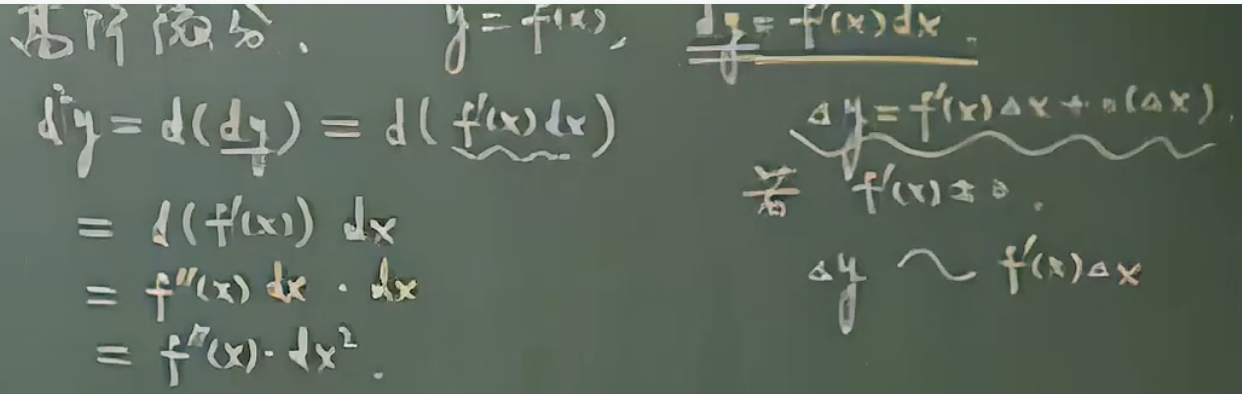 高阶微分. y = f(x), dy = f'(x)dx.
d²y = d(dy) = d(f'(x)dx)
= d(f'(x)) dx
= f''(x) dx · dx
= f''(x) · dx².
Δy = f'(x)Δx + o(Δx).
若 f'(x) ≠ 0.
Δy ~ f'(x)Δx